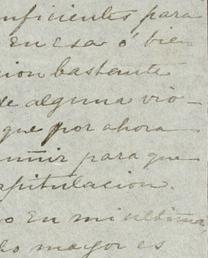 ficientes para
en esa ó bien
cion bastante
de alguna vio-
que por ahora
unir para que
apitulacion.
o en mi ultima
lo mayor es